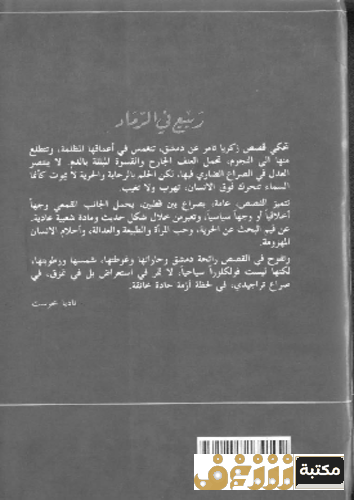 ربيع في الرماد
تحكي قصص زكريا تامر عن دمشق، تنغمس في أعماقها المظلمة، وتتطلع
منها الى النجوم، تحمل العنف الجارح والقسوة المبللة بالدم. لا ينتصر
العدل في الصراع الضاري فيها، لكن الحلم بالرحابة والحرية لا يموت كأنما
السماء تتحرك فوق الانسان، تهرب ولا تغيب.
تتميز القصص، عامة، بصراع بين قطبين. يحمل الجانب القمعي وجهاً
أخلاقياً أو وجهاً سياسياً، وتعبر من خلال شكل حديث ومادة شعبية عادية،
عن قيم البحث عن الحرية، وحب المرأة والطبيعة والعدالة، وأحلام الانسان
المهزومة.
وتفوح في القصص رائحة دمشق وحاراتها وغوطتها، شمسها ورطوبتها،
لكنها ليست فولكلوراً سياحياً، لا تمر في استعراض بل في تمزق، في
صراع تراجيدي، في لحظة أزمة حادة خانقة.
ناديا خوست
مكتبة